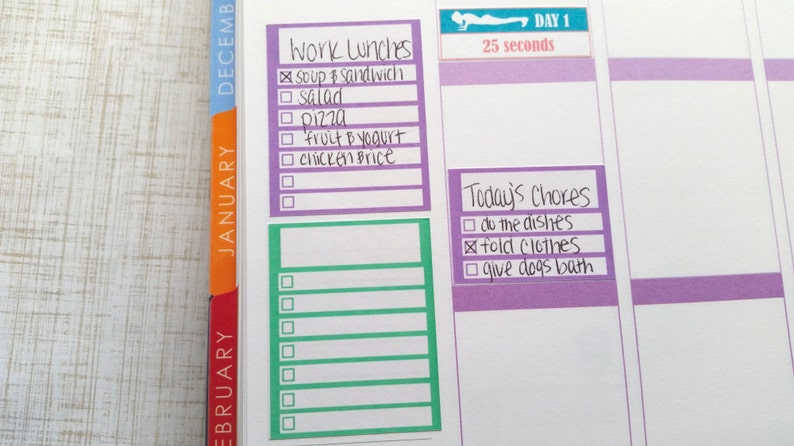 DECEMB
JANUARY
FEBRUARY
Work Lunches
soup & sandwich
salad
pizza
fruit & yogurt
chicken & rice
DAY 1
25 seconds
Today's Chores
do the dishes
fold clothes
give dogs bath